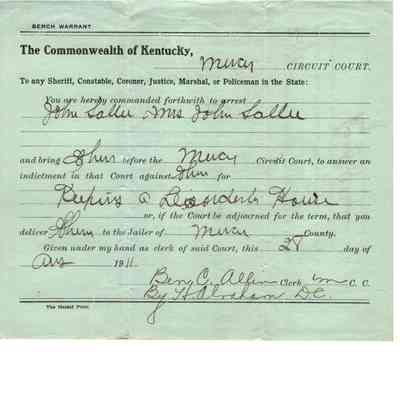 BENCH WARRANT
The Commonwealth of Kentucky,
Mercer CIRCUIT COURT.
To any Sheriff, Constable, Coroner, Justice, Marshal, or Policeman in the State:
You are hereby commanded forthwith to arrest
John Sallee Mrs John Sallee
and bring them before the Mercer Circuit Court, to answer an
indictment in that Court against them for
Keeping a Disorderly House
or, if the Court be adjourned for the term, that you
deliver them to the Jailer of Mercer County.
Given under my hand as clerk of said Court, this 28 day of
Aug 1911.
Ben C. Allin Clerk m C. C.
By H Abraham D.C.
The Herald Print.